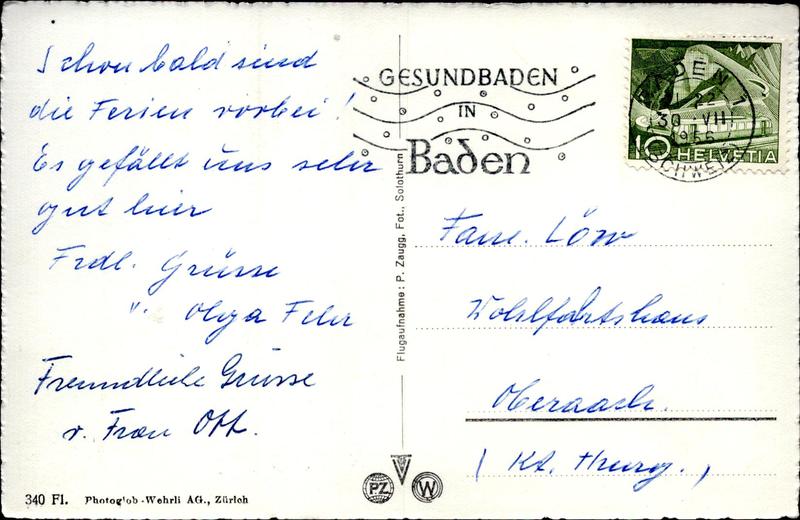 Schon bald sind
die Ferien vorbei!
Es gefällt uns sehr
gut hier
Frdl. Grüsse
v. Olga Fehr
Freundliche Grüsse
v. Frau Ott.
340 Fl. Photoglob-Wehrli AG., Zürich
Flugaufnahme: P. Zaugg, Fot., Solothurn
GESUNDBADEN
IN
Baden
BADEN 1
22
30 VII
1956
SCHWEIZ
10 HELVETIA
Fam. Löw
Wohlfahrtshaus
Oberaach.
(Kt. Thurg.)
PZ W